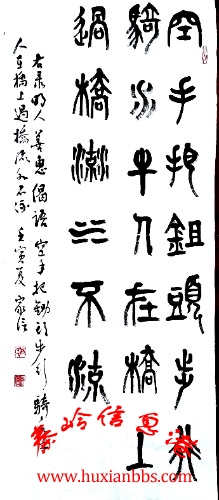 空手把鉏頭步行
騎水牛人在橋上
過橋流水不流
右录明人善惠偈語空手把鋤頭步行騎
人在橋上過橋流水不流壬寅夏家信
www.huxianbbs.com